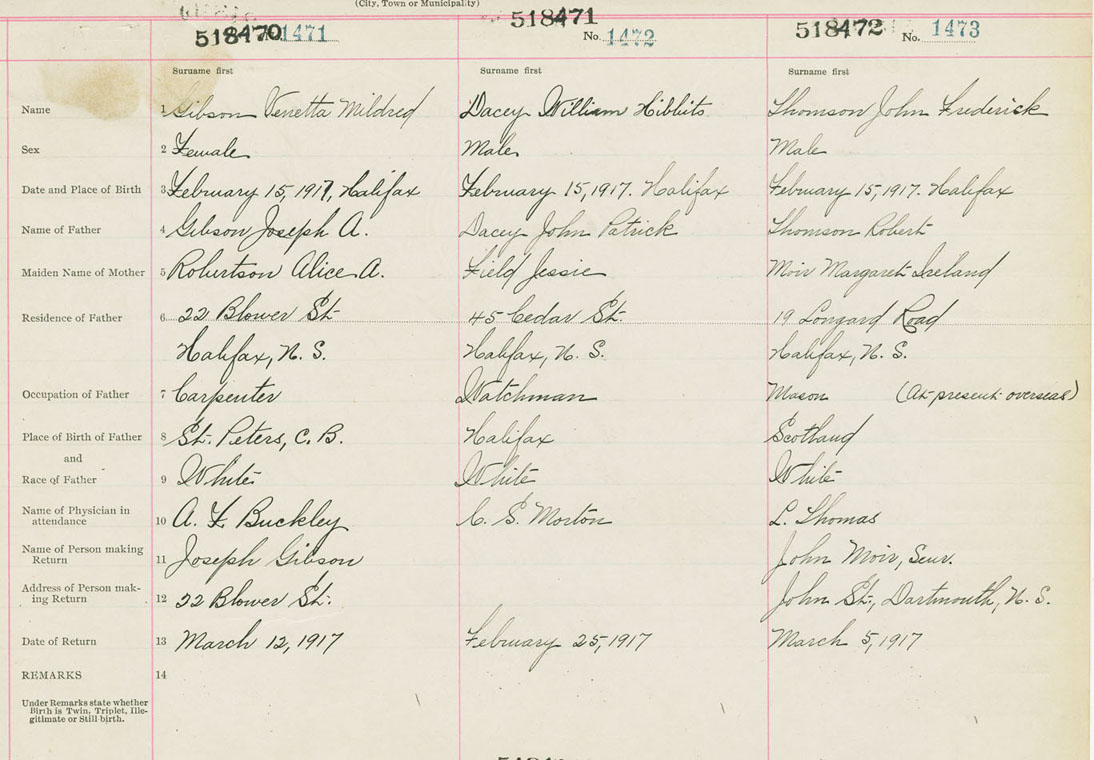 (City, Town or Municipality)
518470 1471
518471
No. 1472
518472 No. 1473
Surname first Surname first Surname first
Name 1 Gibson Venetta Mildred Dacey William Hibbits Thomson John Frederick
Sex 2 Female Male Male
Date and Place of Birth 3 February 15, 1917, Halifax February 15, 1917. Halifax February 15, 1917. Halifax
Name of Father 4 Gibson Joseph A. Dacey John Patrick Thomson Robert
Maiden Name of Mother 5 Robertson Alice A. Field Jessie Moir Margaret Ireland
Residence of Father 6 22 Blower St. 45 Cedar St. 19 Longard Road
Halifax, N. S. Halifax, N. S. Halifax, N. S.
Occupation of Father 7 Carpenter Watchman Mason (At present overseas)
Place of Birth of Father 8 St. Peters, C. B. Halifax Scotland
and
Race of Father 9 White White White
Name of Physician in attendance 10 A. F. Buckley C. S. Morton L. Thomas
Name of Person making Return 11 Joseph Gibson John Moir, Senr.
Address of Person mak-
ing Return 12 22 Blower St. John St., Dartmouth, N. S.
Date of Return 13 March 12, 1917 February 25, 1917 March 5, 1917
REMARKS 14
Under Remarks state whether
Birth is Twin, Triplet, Ille-
gitimate or Still-birth.